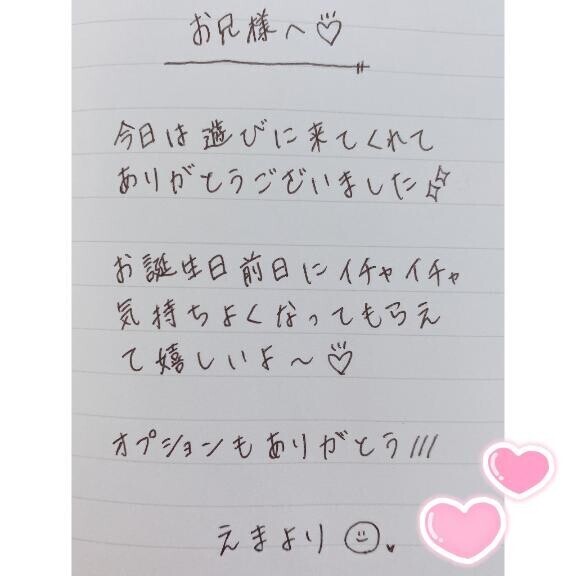 お兄様へ♡
今日は遊びに来てくれて
ありがとうございました✨
お誕生日前日にイチャイチャ
気持ちよくなってもらえ
て嬉しいよ〜♡
オプションもありがとう///
えまより